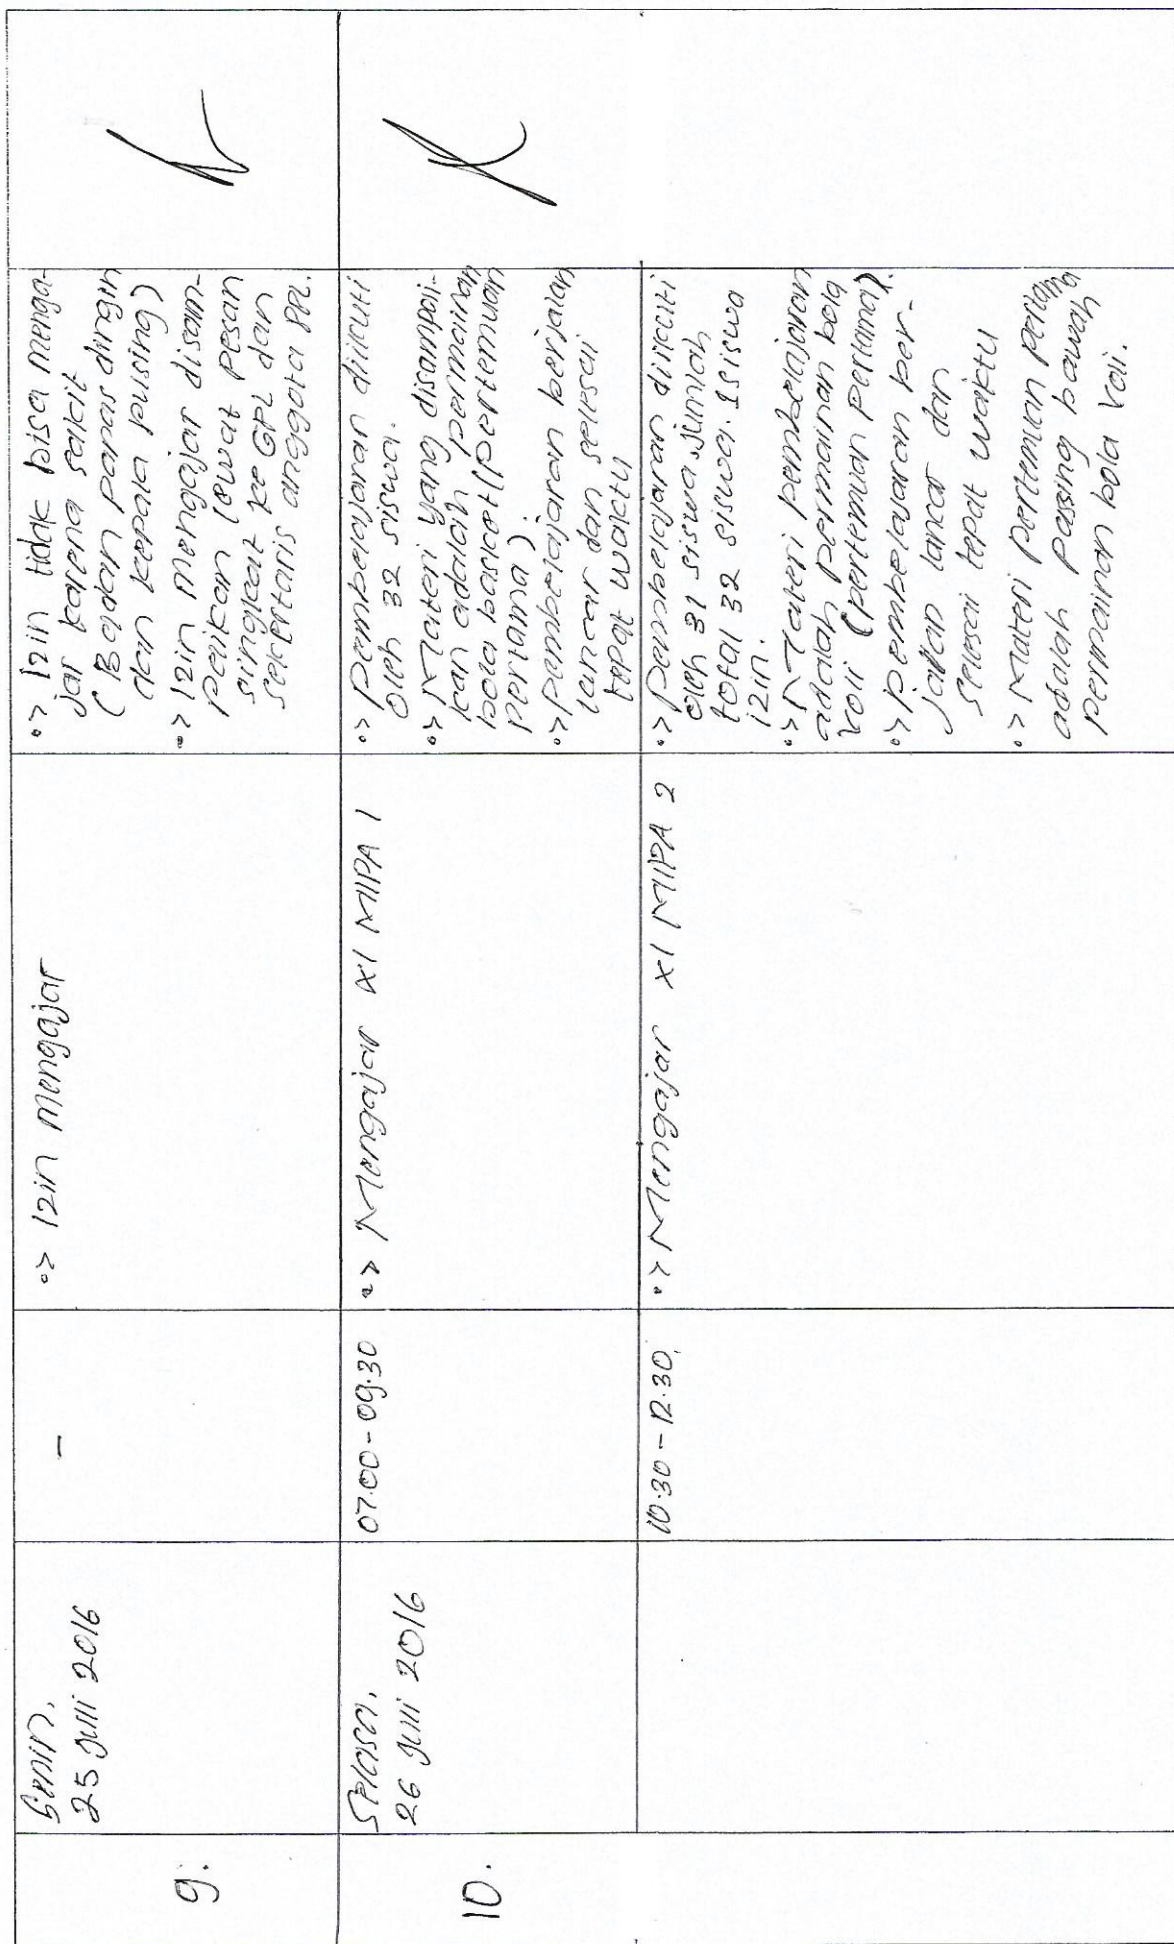 9.
Senin,
25 Juli 2016
-
°> Izin mengajar
°> Izin tidak bisa menga-
jar karena sakit
(Badan panas dingin
dan kepala pusing)
°> Izin mengajar disam-
paikan lewat pesan
singkat ke GPL dan
sekertaris anggota PPL.
10.
Selasa,
26 Juli 2016
07.00-09.30
°> Mengajar XI MIPA 1
°> Pembelajaran diikuti
oleh 32 siswa.
°> Materi yang disampai-
kan adalah permainan
bola basket (pertemuan
pertama)
°> pembelajaran berjalan
lancar dan selesai
tepat waktu
10.30-12.30.
°> Mengajar XI MIPA 2
°> pembelajaran diikuti
oleh 31 siswa jumlah
total 32 siswa. 1 siswa
izin.
°> Materi pembelajaran
adalah permainan bola
voli (pertemuan pertama).
°> pembelajaran ber-
jalan lancar dan
selesai tepat waktu
°> Materi pertemuan pertama
adalah passing bawah
permainan bola voli.